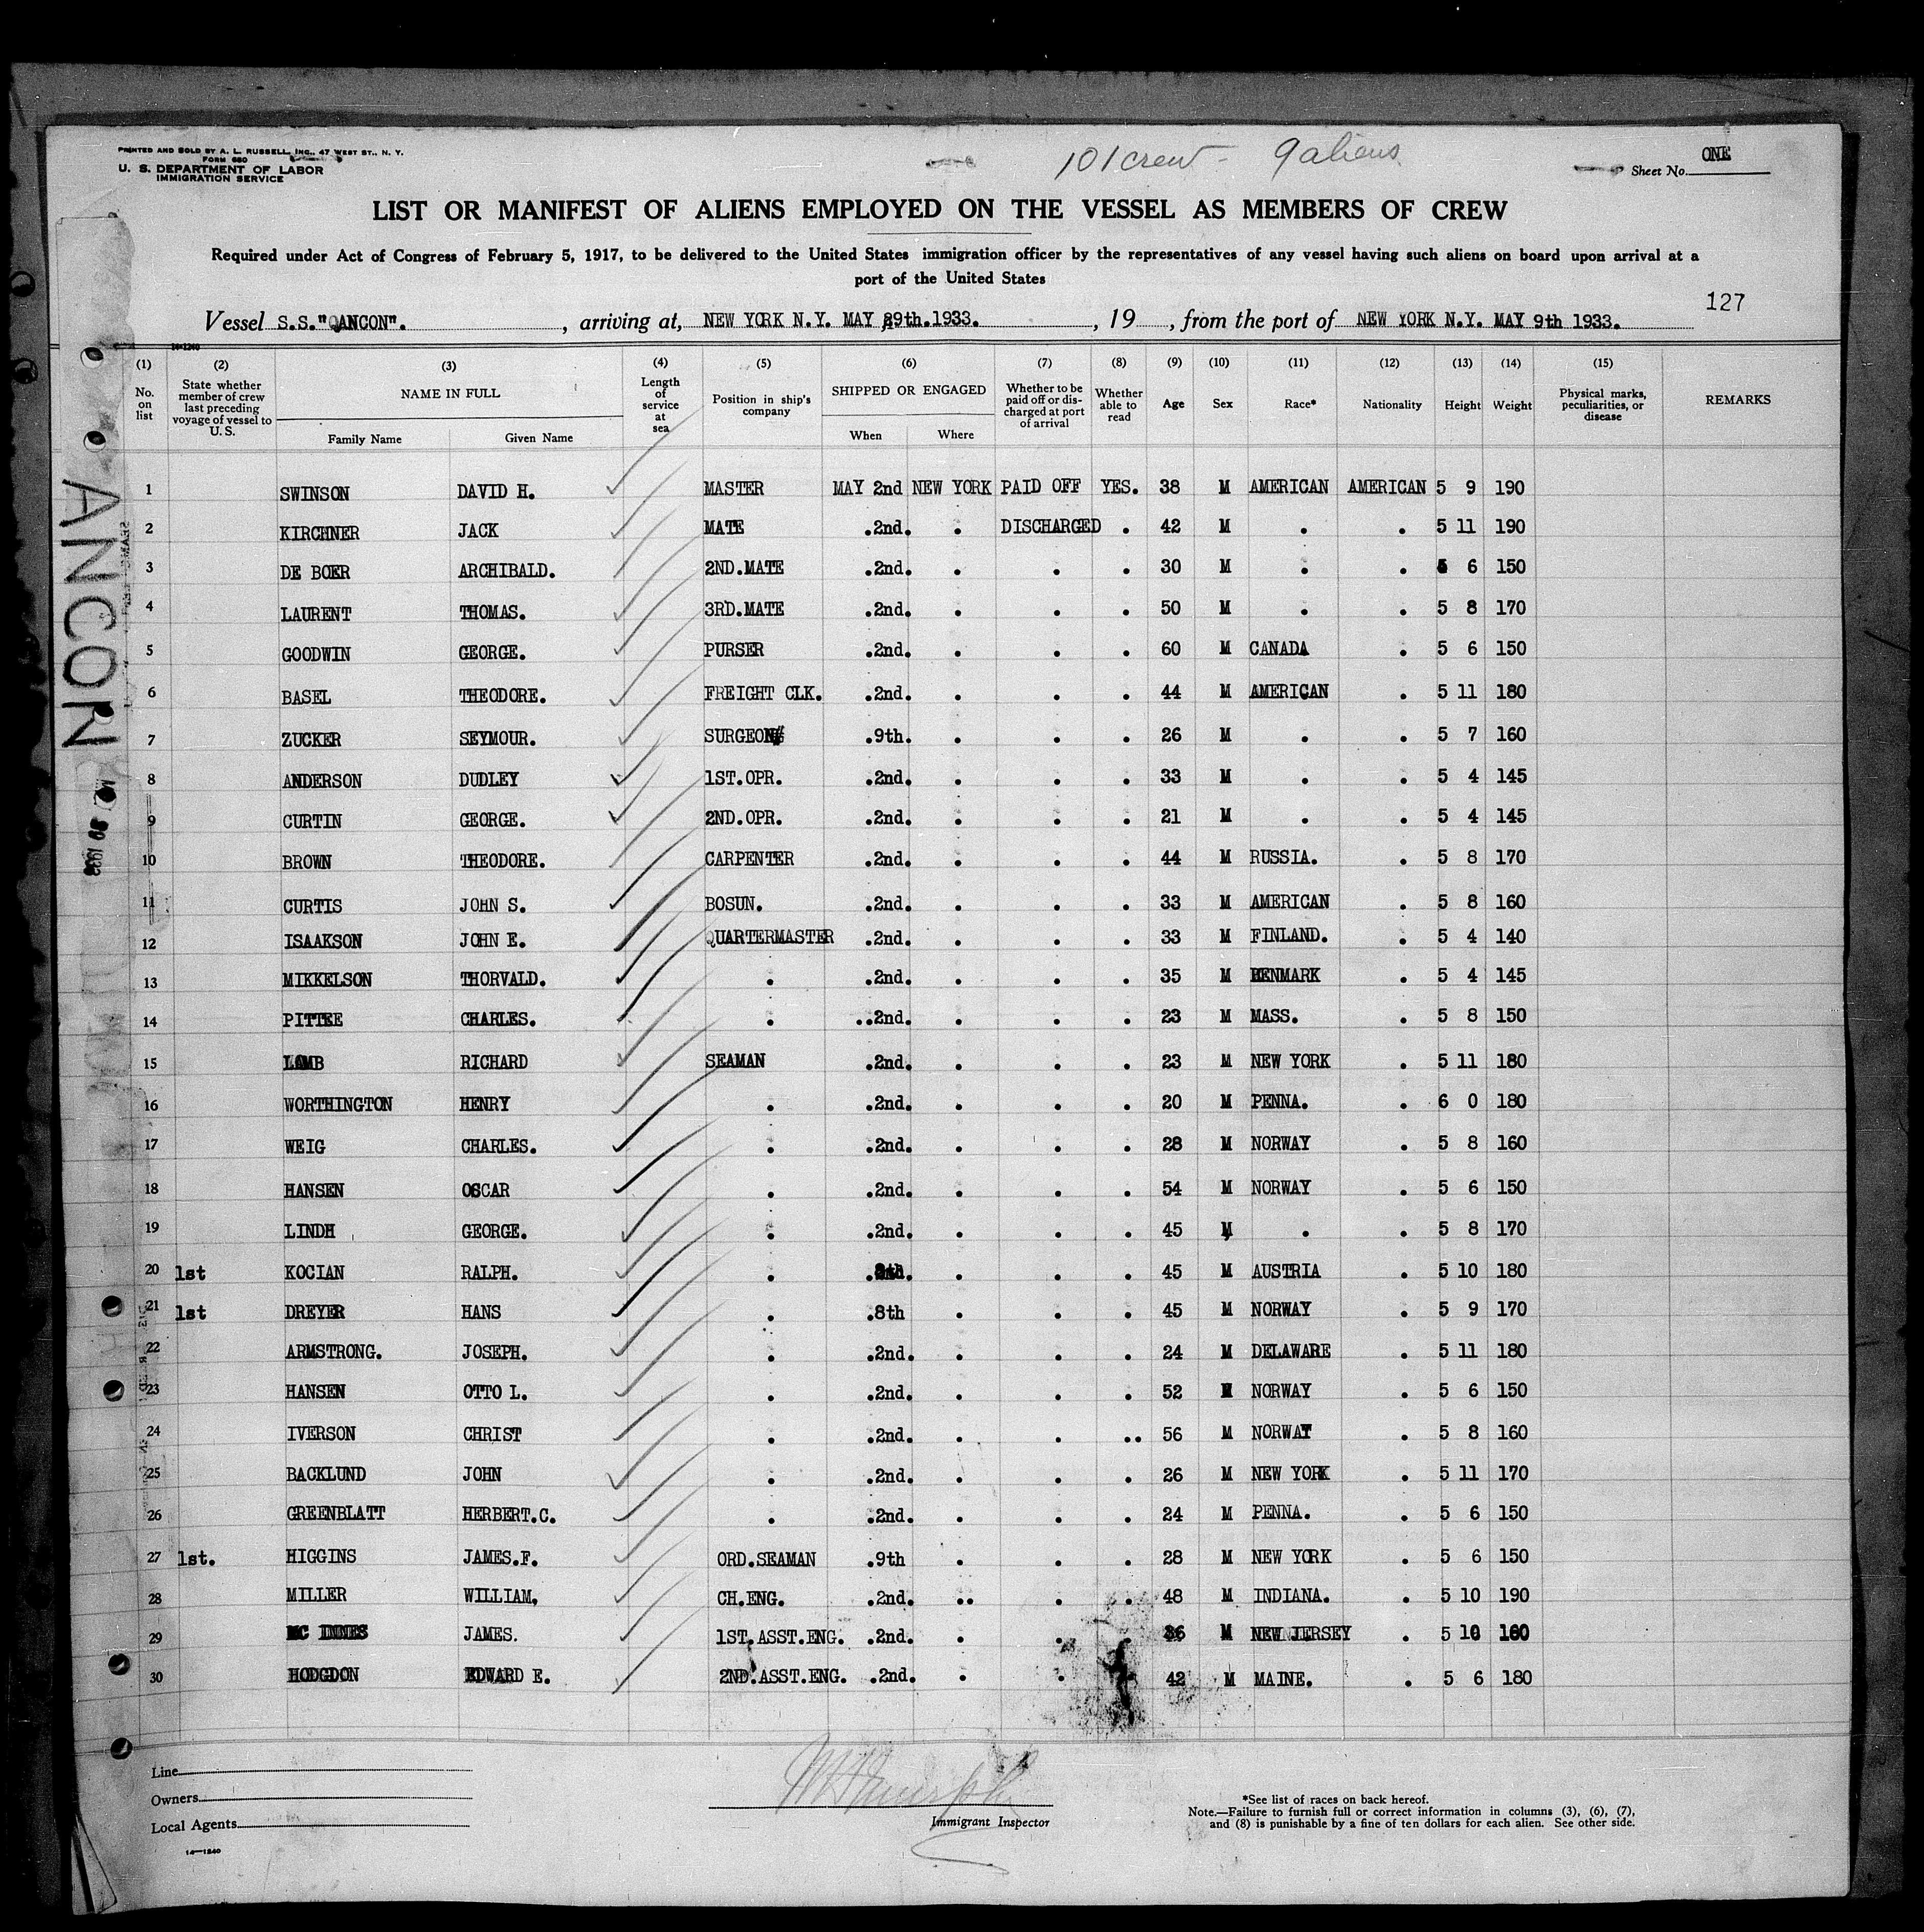 PRINTED AND SOLD BY A. L. RUSSELL, INC., 47 WEST ST., N. Y.
FORM 680
U. S. DEPARTMENT OF LABOR
IMMIGRATION SERVICE
101 crew - 9 aliens
Sheet No. ONE
LIST OR MANIFEST OF ALIENS EMPLOYED ON THE VESSEL AS MEMBERS OF CREW
Required under Act of Congress of February 5, 1917, to be delivered to the United States immigration officer by the representatives of any vessel having such aliens on board upon arrival at a
port of the United States
127
Vessel S.S."ANCON"., arriving at, NEW YORK N.Y. MAY 29th.1933., 19 , from the port of NEW YORK N.Y. MAY 9th 1933.
14-1240
(1) (2) (3) (4) (5) (6) (7) (8) (9) (10) (11) (12) (13) (14) (15)
No. on list
State whether member of crew last preceding voyage of vessel to U. S.
NAME IN FULL
Family Name Given Name
Length of service at sea
Position in ship's company
SHIPPED OR ENGAGED
When Where
Whether to be paid off or discharged at port of arrival
Whether able to read
Age Sex Race* Nationality Height Weight
Physical marks, peculiarities, or disease
REMARKS
1 SWINSON DAVID H. MASTER MAY 2nd NEW YORK PAID OFF YES. 38 M AMERICAN AMERICAN 5 9 190
2 KIRCHNER JACK MATE .2nd. . DISCHARGED . 42 M . . 5 11 190
3 DE BOER ARCHIBALD. 2ND.MATE .2nd. . . . 30 M . . 5 6 150
4 LAURENT THOMAS. 3RD.MATE .2nd. . . . 50 M . . 5 8 170
5 GOODWIN GEORGE. PURSER .2nd. . . . 60 M CANADA . 5 6 150
6 BASEL THEODORE. FREIGHT CLK. .2nd. . . . 44 M AMERICAN . 5 11 180
7 ZUCKER SEYMOUR. SURGEON .9th. . . . 26 M . . 5 7 160
8 ANDERSON DUDLEY 1ST.OPR. .2nd. . . . 33 M . . 5 4 145
9 CURTIN GEORGE. 2ND.OPR. .2nd. . . . 21 M . . 5 4 145
10 BROWN THEODORE. CARPENTER .2nd. . . . 44 M RUSSIA. . 5 8 170
11 CURTIS JOHN S. BOSUN. .2nd. . . . 33 M AMERICAN . 5 8 160
12 ISAAKSON JOHN E. QUARTERMASTER .2nd. . . . 33 M FINLAND. . 5 4 140
13 MIKKELSON THORVALD. . .2nd. . . . 35 M DENMARK . 5 4 145
14 PITTEE CHARLES. . ..2nd. . . . 23 M MASS. . 5 8 150
15 LAMB RICHARD SEAMAN .2nd. . . . 23 M NEW YORK . 5 11 180
16 WORTHINGTON HENRY . .2nd. . . . 20 M PENNA. . 6 0 180
17 WEIG CHARLES. . .2nd. . . . 28 M NORWAY . 5 8 160
18 HANSEN OSCAR . .2nd. . . . 54 M NORWAY . 5 6 150
19 LINDH GEORGE. . .2nd. . . . 45 M . . 5 8 170
20 1st KOCIAN RALPH. . . . . 45 M AUSTRIA . 5 10 180
21 1st DREYER HANS . .8th . . . 45 M NORWAY . 5 9 170
22 ARMSTRONG. JOSEPH. . .2nd. . . . 24 M DELAWARE . 5 11 180
23 HANSEN OTTO L. . .2nd. . . . 52 M NORWAY . 5 6 150
24 IVERSON CHRIST . .2nd. . . .. 56 M NORWAY . 5 8 160
25 BACKLUND JOHN . .2nd. . . . 26 M NEW YORK . 5 11 170
26 GREENBLATT HERBERT.C. . .2nd. . . . 24 M PENNA. . 5 6 150
27 1st. HIGGINS JAMES.F. ORD.SEAMAN .9th . . . 28 M NEW YORK . 5 6 150
28 MILLER WILLIAM. CH.ENG. .2nd. .. . . 48 M INDIANA. . 5 10 190
29 MC INNES JAMES. 1ST.ASST.ENG. .2nd. . . . 36 M NEW JERSEY . 5 10 160
30 HODGDON EDWARD E. 2ND.ASST.ENG. .2nd. . . 42 M MAINE. . 5 6 180
ANCON
Line
Owners
Local Agents
14-1240
Immigrant Inspector
*See list of races on back hereof.
Note.—Failure to furnish full or correct information in columns (3), (6), (7),
and (8) is punishable by a fine of ten dollars for each alien. See other side.